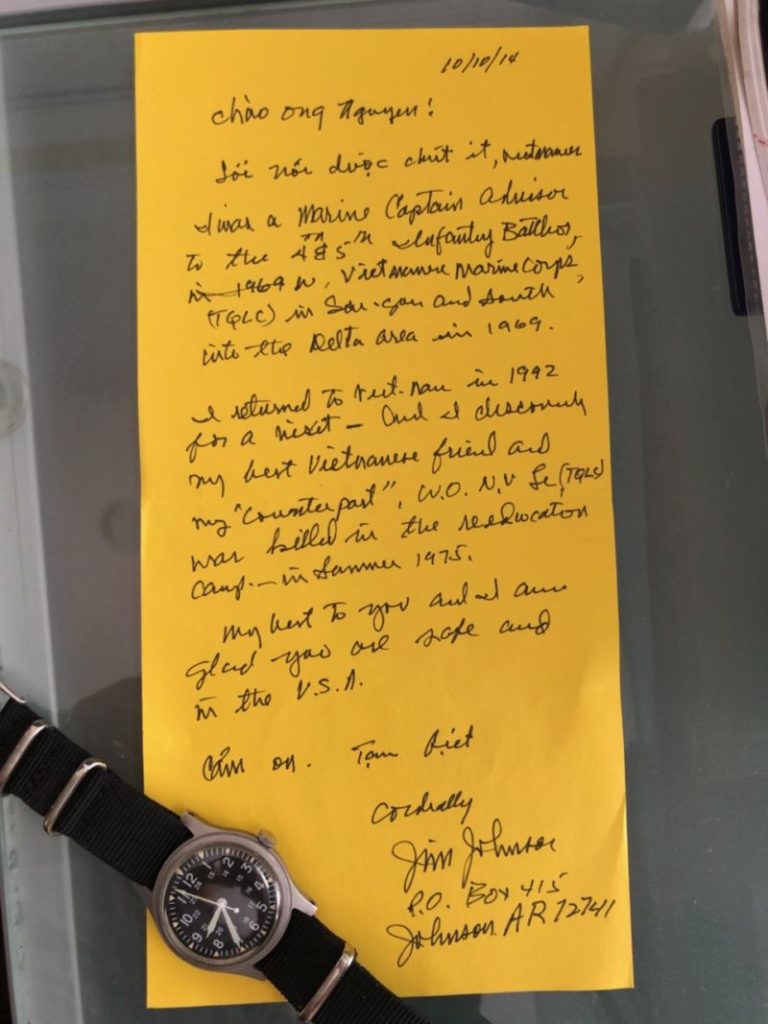 10/10/14
chào ong Nguyen!
Tôi nói được chút ít, vietnamese
I was a Marine Captain Advisor
to the 4th & 5th Infantry Battlions,
in 1969 w, Vietnamese Marine Corps,
(TQLC) in Sai-gon and South
into the Delta area in 1969.
I returned to Viet-nam in 1992
for a visit – and I discovered
my best Vietnamese friend and
my "counterpart", W.O. N.V Le, (TQLC)
was killed in the reeducation
camp. – in Summer 1975.
My best to you and I am
glad you are safe and
in the U.S.A.
Cảm on. Tạm biệt
Cordially
Jim Johnson
P.O. Box 415
Johnson AR 72741
12
1
2
3
4
5
6
7
8
9
10
11